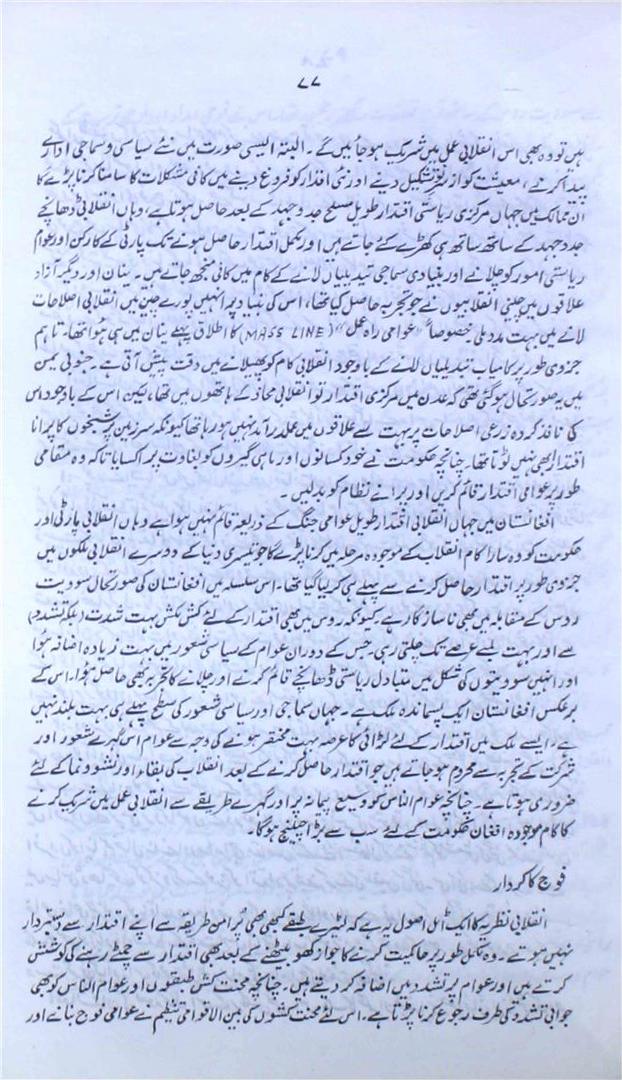 ۷۷
ہیں تو وہ بھی اس انقلابی عمل میں شریک ہو جائیں گے۔ البتہ ایسی صورت میں نئے سیاسی و سماجی ادارے
پیدا کرنے، معیشت کو از سر نو تشکیل دینے اور نئی اقدار کو فروغ دینے میں کافی مشکلات کا سامنا کرنا پڑے گا
ان ممالک میں جہاں مرکزی ریاستی اقتدار طویل مسلح جدوجہد کے بعد حاصل ہوتا ہے، وہاں انقلابی ڈھانچے
جدوجہد کے ساتھ ساتھ ہی کھڑے کئے جاتے ہیں اور مکمل اقتدار حاصل ہونے تک پارٹی کے کارکن اور عوام
ریاستی امور کو چلانے اور بنیادی سماجی تبدیلیاں لانے کے کام میں کافی منجھ جاتے ہیں۔ ینان اور دیگر آزاد
علاقوں میں چینی انقلابیوں نے جو تجربہ حاصل کیا تھا، اس کی بنیاد پر انہیں پورے چین میں انقلابی اصلاحات
لانے میں بہت مدد ملی خصوصاً "عوامی راہ عمل" (MASS LINE) کا اطلاق پہلے ینان میں ہی ہوا تھا۔ تاہم
جزوی طور پر کامیاب تبدیلیاں لانے کے باوجود انقلابی کام کو پھیلانے میں دقت پیش آتی ہے۔ جنوبی یمن
میں یہ صورتحال ہو گئی تھی کہ عدن میں مرکزی اقتدار تو انقلابی محاذ کے ہاتھوں میں تھا، لیکن اس کے باوجود اس
کی نافذ کردہ زرعی اصلاحات پر بہت سے علاقوں میں عملدرآمد نہیں ہو رہا تھا کیونکہ سرزمین پر شیخوں کا پرانا
اقتدار ابھی نہیں ٹوٹا تھا۔ چنانچہ حکومت نے خود کسانوں اور ماہی گیروں کو بغاوت پر اکسایا تاکہ وہ مقامی
طور پر عوامی اقتدار قائم کریں اور پرانے نظام کو بدلیں۔
افغانستان میں جہاں انقلابی اقتدار طویل عوامی جنگ کے ذریعہ قائم نہیں ہوا ہے وہاں انقلابی پارٹی اور
حکومت کو وہ سارا کام انقلاب کے موجودہ مرحلہ میں کرنا پڑے گا جو تیسری دنیا کے دوسرے انقلابی ملکوں میں
جزوی طور پر اقتدار حاصل کرنے سے پہلے ہی کر لیا گیا تھا۔ اس سلسلہ میں افغانستان کی صورتحال سوویت
روس کے مقابلہ میں بھی ناسازگار ہے۔ کیونکہ روس میں بھی اقتدار کے لئے کش مکش بہت شدت (بلکہ تشدد)
سے اور بہت لمبے عرصے تک چلتی رہی۔ جس کے دوران عوام کے سیاسی شعور میں بہت زیادہ اضافہ ہوا
اور انہیں سوویتوں کی شکل میں متبادل ریاستی ڈھانچے قائم کرنے اور چلانے کا تجربہ بھی حاصل ہوا، اس کے
برعکس افغانستان ایک پسماندہ ملک ہے۔ جہاں سماجی اور سیاسی شعور کی سطح پہلے ہی بہت بلند نہیں
ہے، ایسے ملک میں اقتدار کے لئے لڑائی کا عرصہ بہت مختصر ہونے کی وجہ سے عوام اس گہرے شعور اور
شرکت کے تجربہ سے محروم ہو جاتے ہیں جو اقتدار حاصل کرنے کے بعد انقلاب کی بقاء اور نشوونما کے لئے
ضروری ہوتا ہے۔ چنانچہ عوام الناس کو وسیع پیمانہ پر اور گہرے طریقے سے انقلابی عمل میں شریک کرنے
کا کام موجودہ افغان حکومت کے لئے سب سے بڑا چیلنج ہوگا۔
فوج کا کردار
انقلابی نظریہ کا ایک اٹل اصول یہ ہے کہ لٹیرے طبقے کبھی بھی پُرامن طریقہ سے اپنے اقتدار سے دستبردار
نہیں ہوتے۔ وہ مکمل طور پر حاکمیت کرنے کا جواز کھو بیٹھنے کے بعد بھی اقتدار سے چمٹے رہنے کی کوشش
کرتے ہیں اور عوام پر تشدد میں اضافہ کر دیتے ہیں۔ چنانچہ محنت کش طبقوں اور عوام الناس کو بھی
جوابی تشدد کی طرف رجوع کرنا پڑتا ہے۔ اس لئے محنت کشوں کی بین الاقوامی تنظیم نے عوامی فوج بنانے اور